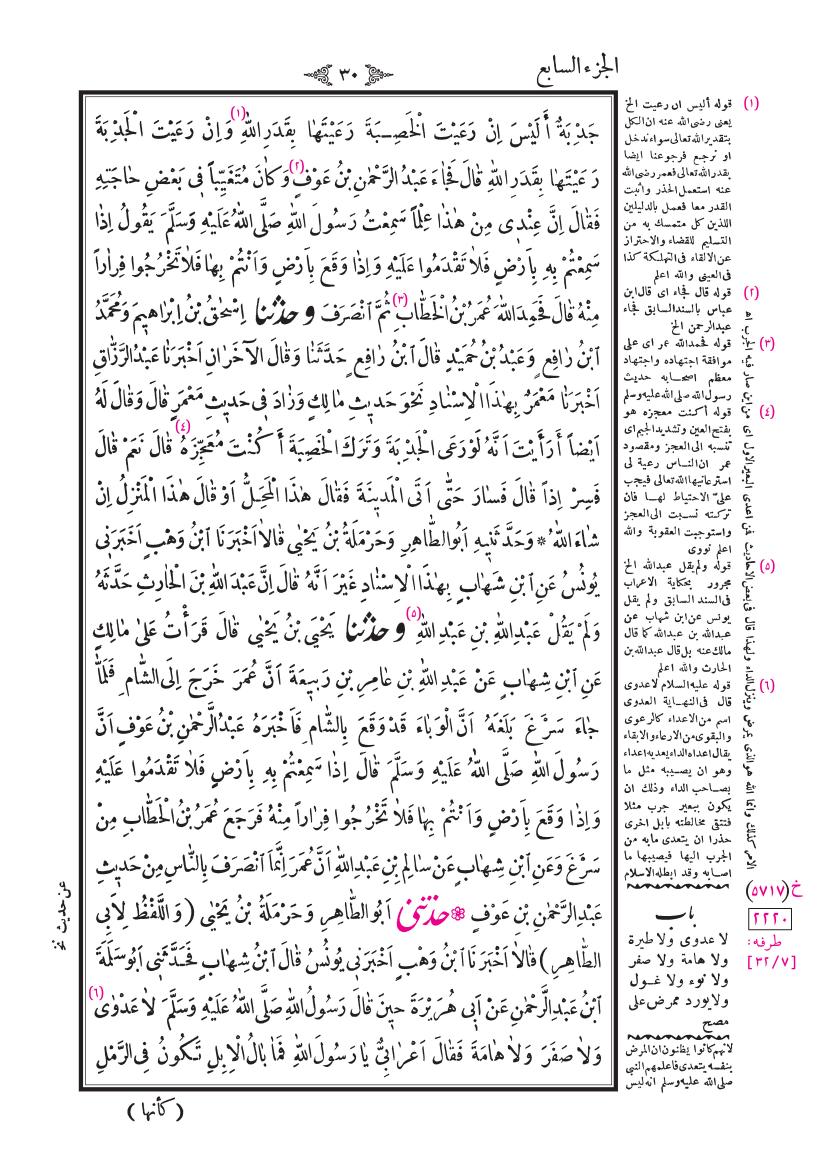 الجزء السابع
٣٠
جَدْبَةٌ أَلَيْسَ اِنْ رَعَيْتَ الْخَصِبَةَ رَعَيْتَهَا بِقَدَرِ اللّٰهِ (١) وَاِنْ رَعَيْتَ الْجَدْبَةَ
رَعَيْتَهَا بِقَدَرِ اللّٰهِ قَالَ فَجَاءَ عَبْدُ الرَّحْمٰنِ بْنُ عَوْفٍ (٢) وَكَانَ مُتَغَيِّباً فِى بَعْضِ حَاجَتِهِ
فَقَالَ اِنَّ عِنْدِى مِنْ هٰذَا عِلْماً سَمِعْتُ رَسُولَ اللّٰهِ صَلَّى اللّٰهُ عَلَيْهِ وَسَلَّمَ يَقُولُ اِذَا
سَمِعْتُمْ بِهِ بِاَرْضٍ فَلَا تَقْدَمُوا عَلَيْهِ وَاِذَا وَقَعَ بِاَرْضٍ وَاَنْتُمْ بِهَا فَلَا تَخْرُجُوا فِرَاراً
مِنْهُ قَالَ فَحَمِدَ اللّٰهَ عُمَرُ بْنُ الْخَطَّابِ (٣) ثُمَّ انْصَرَفَ وَ حَدَّثَنَا اِسْحٰقُ بْنُ اِبْرَاهِيمَ وَمُحَمَّدُ
ابْنُ رَافِعٍ وَعَبْدُ بْنُ حُمَيْدٍ قَالَ ابْنُ رَافِعٍ حَدَّثَنَا وَقَالَ الْآخَرَانِ اَخْبَرَنَا عَبْدُ الرَّزَّاقِ
اَخْبَرَنَا مَعْمَرٌ بِهٰذَا الْاِسْنَادِ نَحْوَ حَدِيثِ مَالِكٍ وَزَادَ فِى حَدِيثِ مَعْمَرٍ قَالَ وَقَالَ لَهُ
اَيْضاً أَرَأَيْتَ اَنَّهُ لَوْ رَعَى الْجَدْبَةَ وَتَرَكَ الْخَصِبَةَ أَكُنْتَ مُعَجِّزَهُ (٤) قَالَ نَعَمْ قَالَ
فَسِرْ اِذاً قَالَ فَسَارَ حَتّٰى اَتَى الْمَدِينَةَ فَقَالَ هٰذَا الْمَحِلُّ اَوْ قَالَ هٰذَا الْمَنْزِلُ اِنْ
شَاءَ اللّٰهُ * وَحَدَّثَنِيهِ اَبُو الطَّاهِرِ وَحَرْمَلَةُ بْنُ يَحْيٰى قَالَا اَخْبَرَنَا ابْنُ وَهْبٍ اَخْبَرَنِى
يُونُسُ عَنِ ابْنِ شِهَابٍ بِهٰذَا الْاِسْنَادِ غَيْرَ اَنَّهُ قَالَ اِنَّ عَبْدَ اللّٰهِ بْنَ الْحَارِثِ حَدَّثَهُ
وَلَمْ يَقُلْ عَبْدِ اللّٰهِ بْنِ عَبْدِ اللّٰهِ (٥) وَ حَدَّثَنَا يَحْيَى بْنُ يَحْيٰى قَالَ قَرَأْتُ عَلٰى مَالِكٍ
عَنِ ابْنِ شِهَابٍ عَنْ عَبْدِ اللّٰهِ بْنِ عَامِرِ بْنِ رَبِيعَةَ اَنَّ عُمَرَ خَرَجَ اِلَى الشَّامِ فَلَمَّا
جَاءَ سَرْغَ بَلَغَهُ اَنَّ الْوَبَاءَ قَدْ وَقَعَ بِالشَّامِ فَاَخْبَرَهُ عَبْدُ الرَّحْمٰنِ بْنُ عَوْفٍ اَنَّ
رَسُولَ اللّٰهِ صَلَّى اللّٰهُ عَلَيْهِ وَسَلَّمَ قَالَ اِذَا سَمِعْتُمْ بِهِ بِاَرْضٍ فَلَا تَقْدَمُوا عَلَيْهِ
وَاِذَا وَقَعَ بِاَرْضٍ وَاَنْتُمْ بِهَا فَلَا تَخْرُجُوا فِرَاراً مِنْهُ فَرَجَعَ عُمَرُ بْنُ الْخَطَّابِ مِنْ
سَرْغَ وَعَنِ ابْنِ شِهَابٍ عَنْ سَالِمِ بْنِ عَبْدِ اللّٰهِ اَنَّ عُمَرَ اِنَّمَا انْصَرَفَ بِالنَّاسِ مِنْ حَدِيثِ
عَبْدِ الرَّحْمٰنِ بْنِ عَوْفٍ * حَدَّثَنِى اَبُو الطَّاهِرِ وَحَرْمَلَةُ بْنُ يَحْيٰى (وَاللَّفْظُ لِاَبِى
الطَّاهِرِ) قَالَا اَخْبَرَنَا ابْنُ وَهْبٍ اَخْبَرَنِى يُونُسُ قَالَ ابْنُ شِهَابٍ فَحَدَّثَنِى اَبُو سَلَمَةَ
ابْنُ عَبْدِ الرَّحْمٰنِ عَنْ اَبِى هُرَيْرَةَ حِينَ قَالَ رَسُولُ اللّٰهِ صَلَّى اللّٰهُ عَلَيْهِ وَسَلَّمَ لَا عَدْوٰى (٦)
وَلَا صَفَرَ وَلَا هَامَةَ فَقَالَ اَعْرَابِىٌّ يَا رَسُولَ اللّٰهِ فَمَا بَالُ الْاِبِلِ تَكُونُ فِى الرَّمْلِ
(كأنها)
(١) قوله أليس ان رعيت الخ
يعنى رضى الله عنه ان الكل
بتقدير الله تعالى سواء ندخل
او نرجع فرجوعنا ايضا
بقدر الله تعالى فعمر رضى الله
عنه استعمل الحذر وأثبت
القدر معا فعمل بالدليلين
اللذين كل متمسك به من
التسليم للقضاء والاحتراز
عن الالقاء فى التهلكة كذا
فى العينى والله اعلم
(٢) قوله قال فجاء اى قال ابن
عباس بالسند السابق فجاء
عبدالرحمن الخ
(٣) قوله فحمدالله عمر اى على
موافقة اجتهاده واجتهاد
معظم اصحابه حديث
رسول الله صلى الله عليه وسلم
(٤) قوله أكنت معجزه هو
بفتح العين وتشديد الجيم اى
تنسبه الى العجز ومقصود
عمر ان الناس رعية لى
استرعانيها الله تعالى فيجب
علىّ الاحتياط لها فان
تركته نسبت الى العجز
واستوجبت العقوبة والله
اعلم نووى
(٥) قوله ولم يقل عبدالله الخ
مجرور بحكاية الاعراب
فى السند السابق ولم يقل
يونس عن ابن شهاب عن
عبدالله بن عبدالله كما قال
مالك عنه بل قال عبدالله بن
الحارث والله اعلم
(٦) قوله عليه السلام لا عدوى
قال فى النهاية العدوى
اسم من الاعداء كالرعوى
والبقوى من الارعاء والابقاء
يقال اعداه الداء يعديه اعداء
وهو ان يصيبه مثل ما
بصاحب الداء وذلك ان
يكون ببعير جرب مثلا
فتتقى مخالطته بابل اخرى
حذرا ان يتعدى مابه من
الجرب اليها فيصيبها ما
اصابه وقد ابطله الاسلام
خ (٥٧١٧)
٢٢٢٠
طرفه:
[٣٢/٧]
باب
لا عدوى ولا طيرة
ولا هامة ولا صفر
ولا نوء ولا غول
ولا يورد ممرض على
مصح
لانهم كانوا يظنون ان المرض
بنفسه يتعدى فاعلمهم النبى
صلى الله عليه وسلم انه ليس
الامر كذلك وانما الله هو الذى يمرض وينزل الداء ولهذا قال فى بعض الاحاديث فمن اعدى البعير الاول اى من اين صار فيه الجرب اه
عن حديث نخ